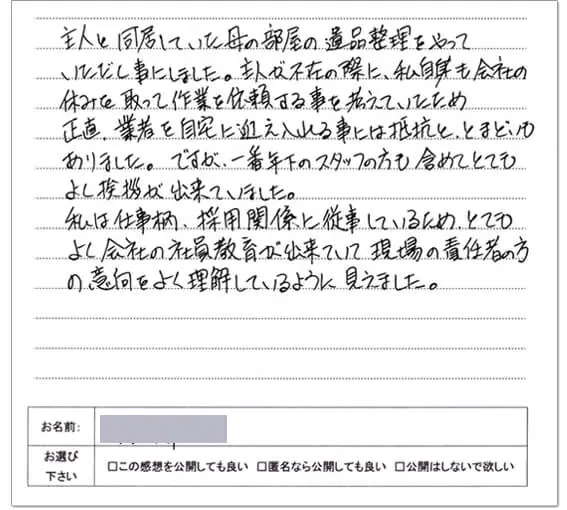 主人と同居していた母の部屋の遺品整理をやって
いただし事にしました。主人が不在の際に、私自身も会社の
休みを取って作業を依頼する事を考えていたため
正直、業者を自宅に迎え入れる事には抵抗と、とまどいも
ありました。ですが、一番年下のスタッフの方も含めてとても
よし挨拶が出来ていました。
私は仕事柄、採用関係に従事しているため、とても
よく会社の社員教育が出来ていて現場の責任者の方
の意向をよく理解しているように見えました。
お名前:
お選び
下さい
□この感想を公開しても良い □匿名なら公開しても良い □公開はしないで欲しい